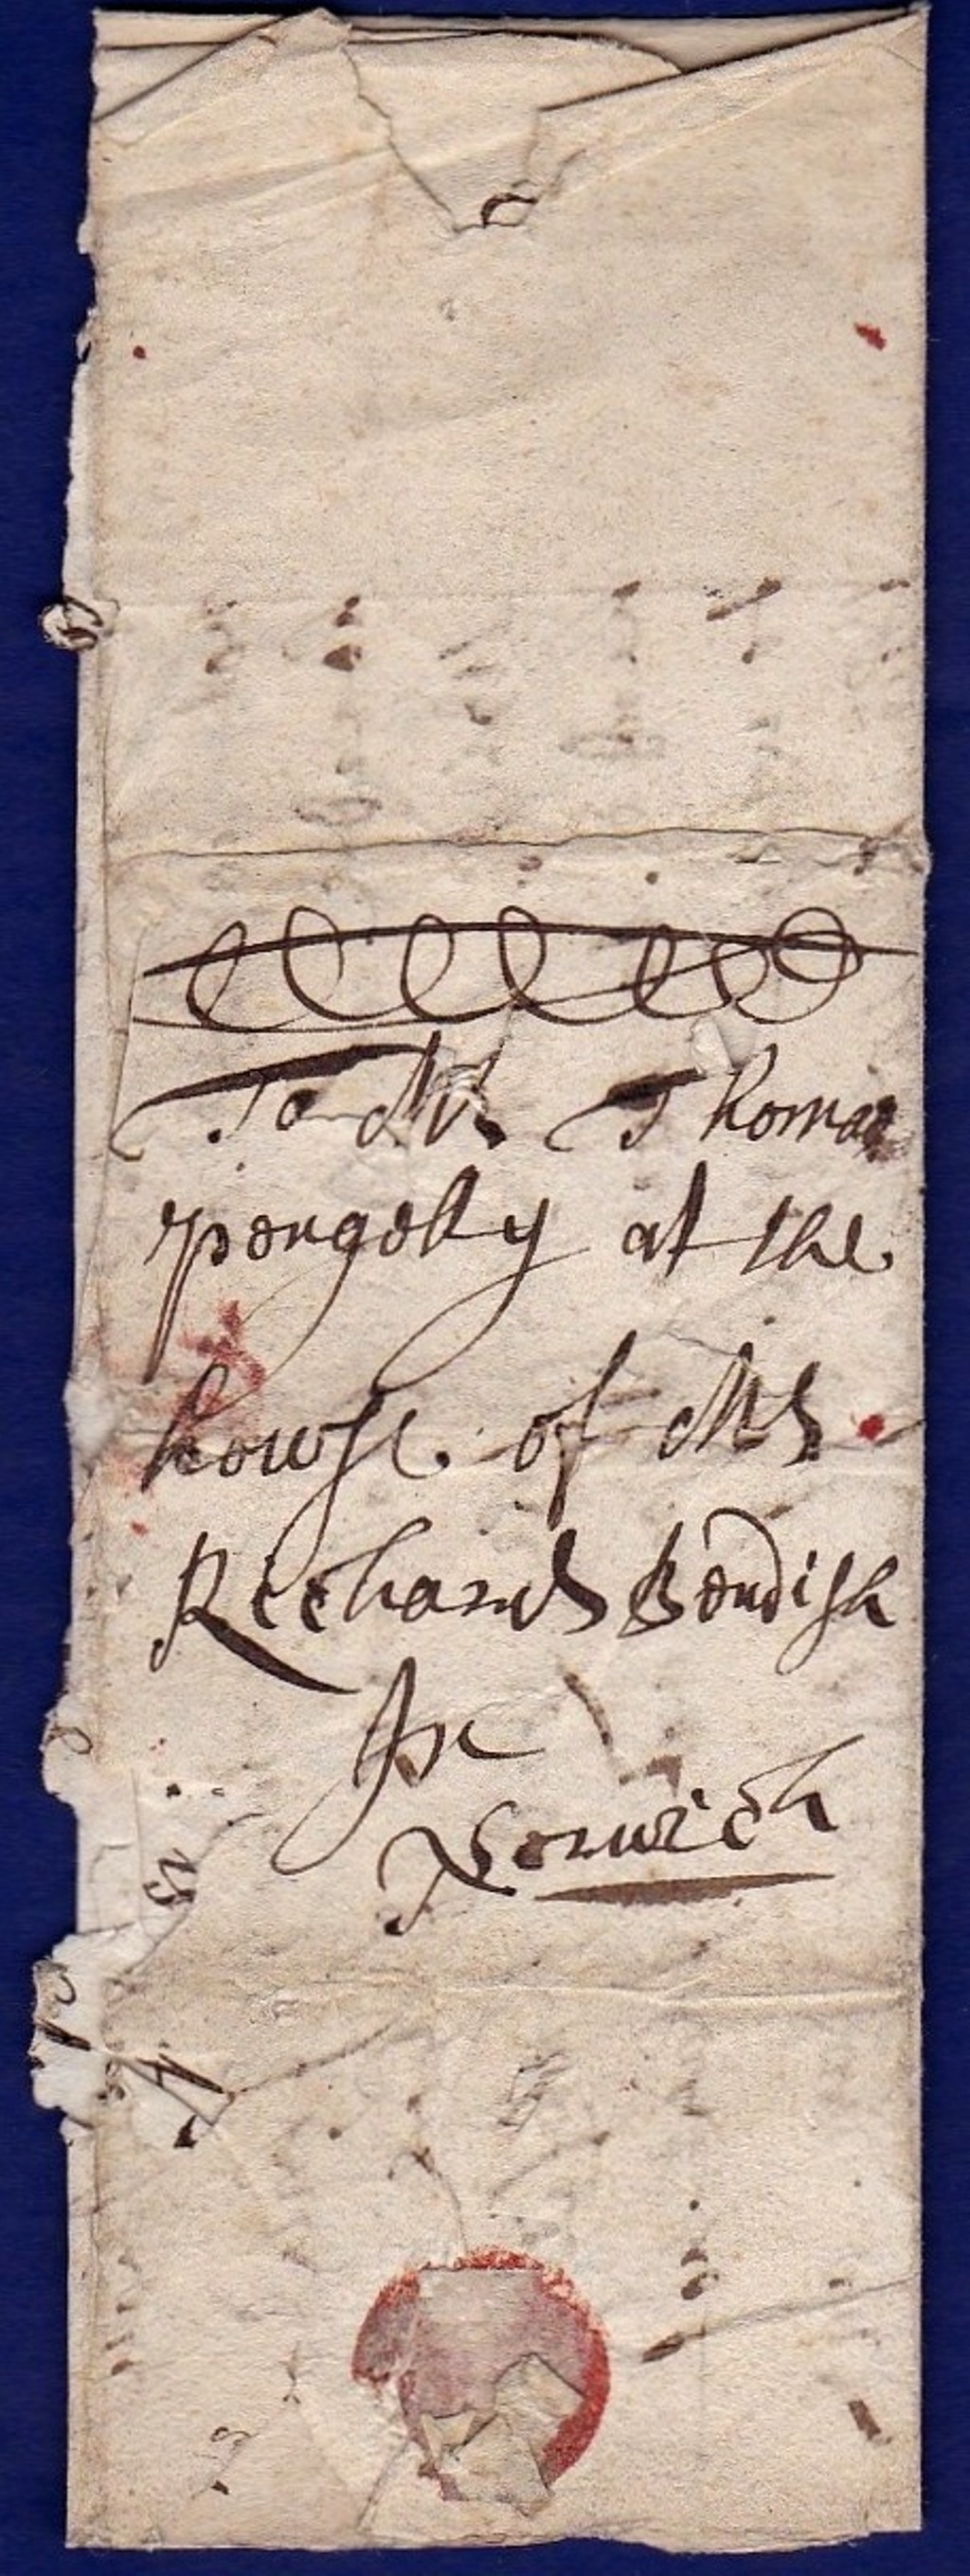 To Mr Thomas
pengelly at the
howse of Mr
Rechard Bendish
In
Norwich